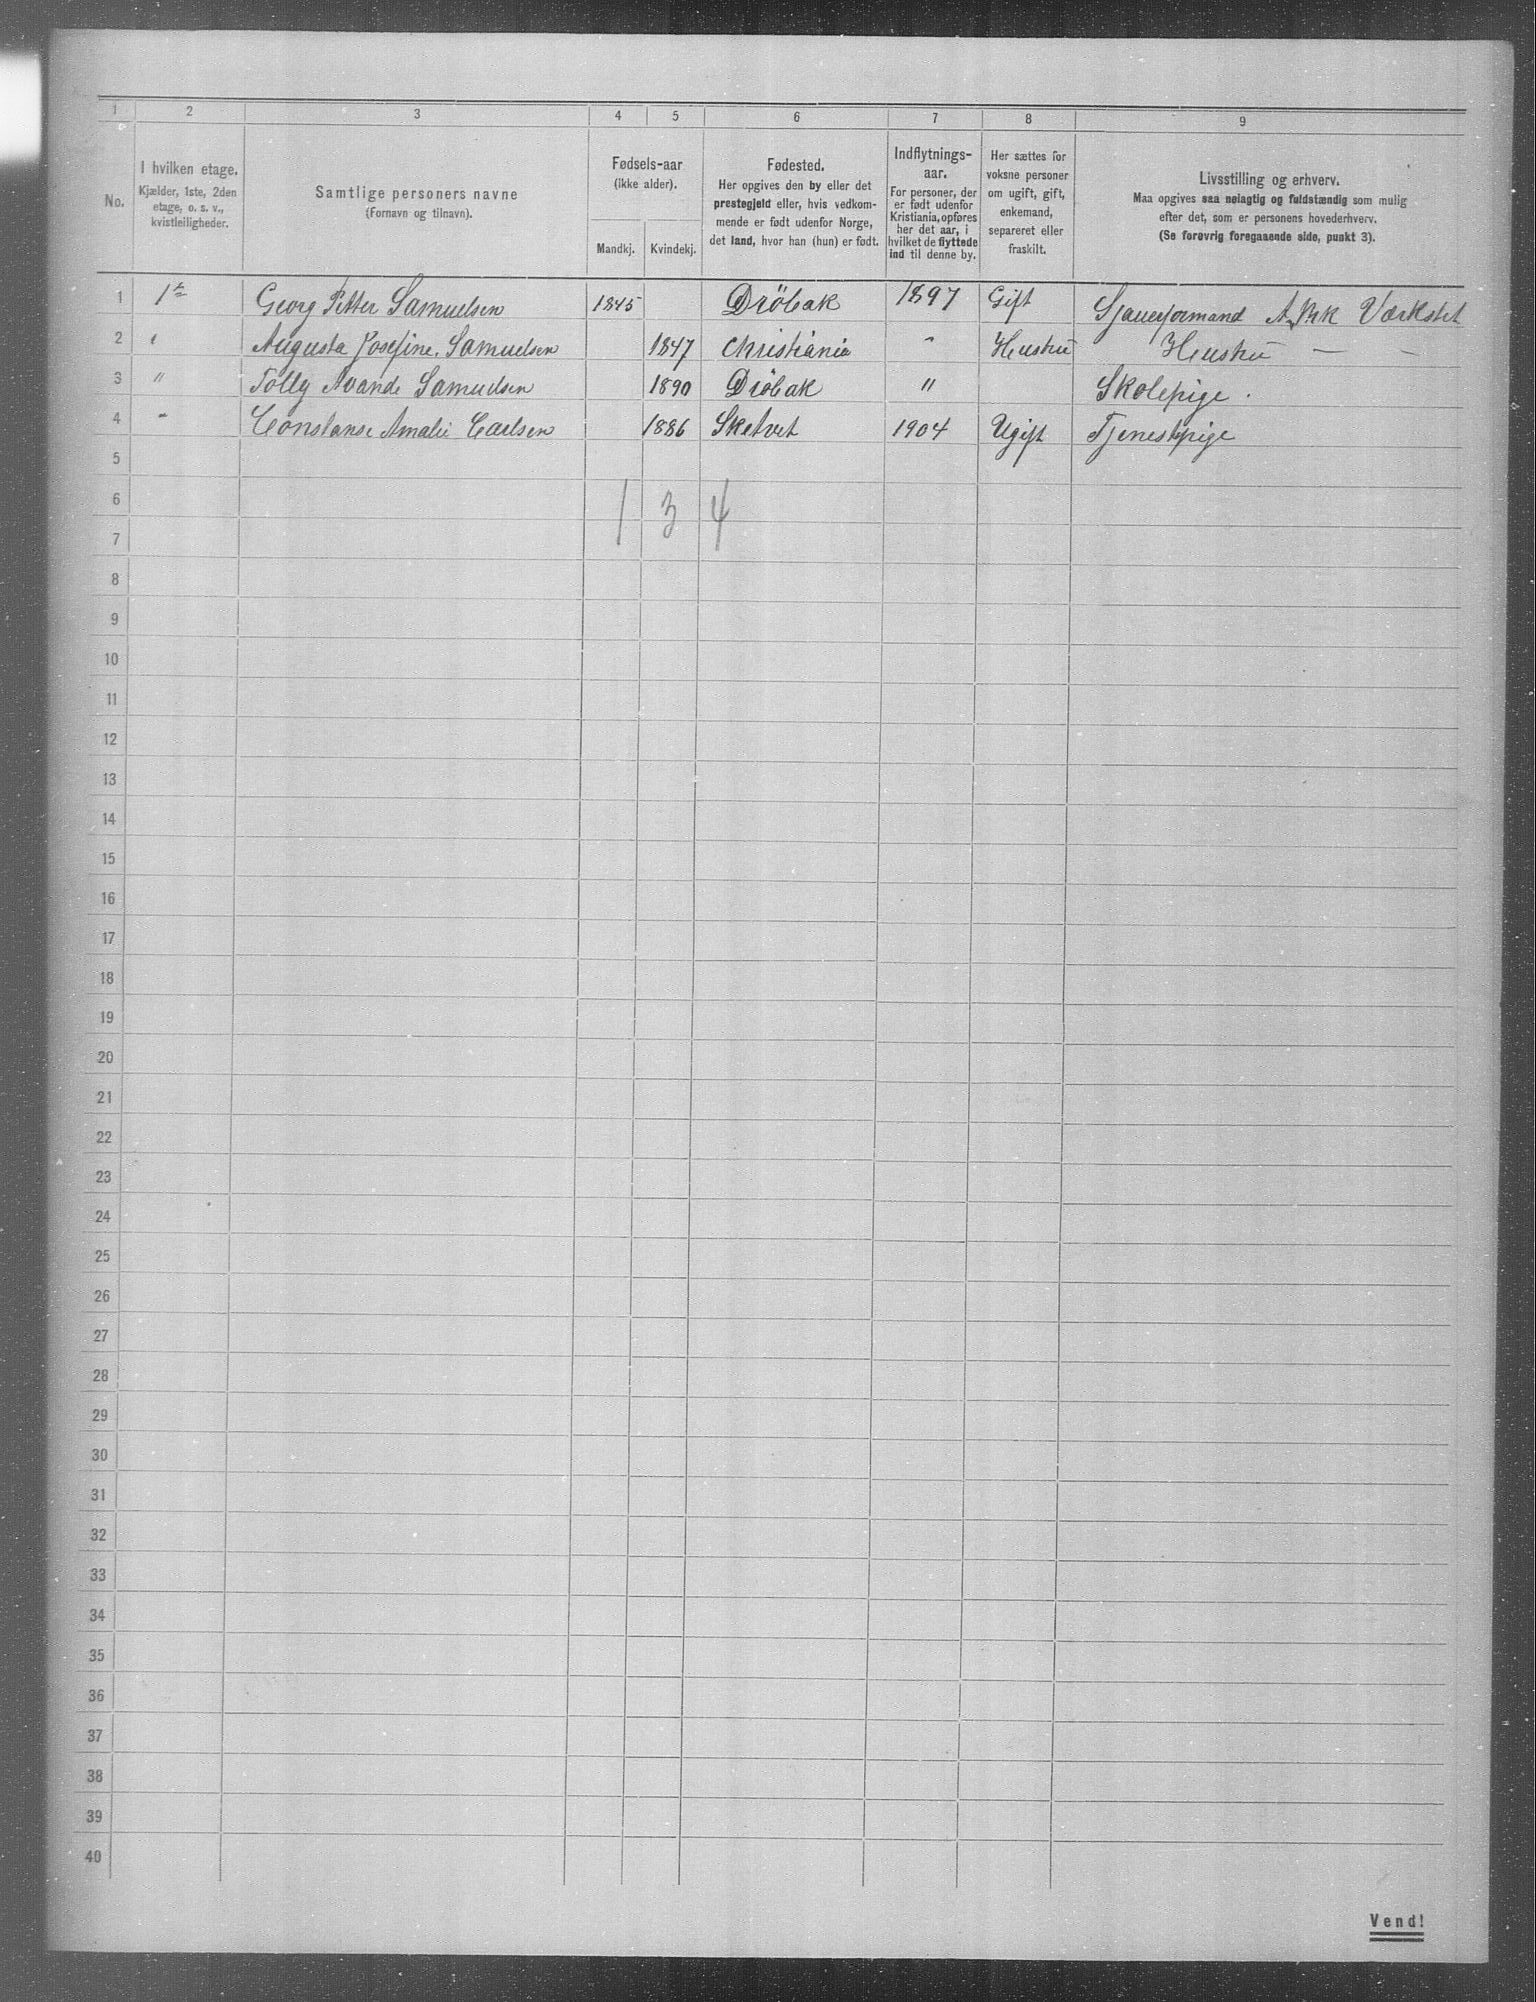 1 2 3 4 5 6 7 8 9
No.
I hvilken etage.
Kjælder, 1ste, 2den
etage, o. s. v.,
kvistleiligheder.
Samtlige personers navne
(Fornavn og tilnavn).
Fødsels-aar
(ikke alder).
Mandkj. Kvindekj.
Fødested.
Her opgives den by eller det
prestegjeld eller, hvis vedkom-
mende er født udenfor Norge,
det land, hvor han (hun) er født.
Indflytnings-
aar.
For personer, der
er født udenfor
Kristiania, opføres
her det aar, i
hvilket de flyttede
ind til denne by.
Her sættes for
voksne personer
om ugift, gift,
enkemand,
separeret eller
fraskilt.
Livsstilling og erhverv.
Maa opgives saa nøiagtig og fuldstændig som mulig
efter det, som er personens hovederhverv.
(Se forøvrig foregaaende side, punkt 3).
1 1ste Georg Petter Samuelsen 1845 Dröbak 1897 Gift Sjaueformand Værkstet
2 " Augusta Josefine Samuelsen 1847 Christiania " Hustru Hustru — —
3 " Tolly Samuelsen 1890 Dröbak " Skolepige.
4 " Constanse Amalie Carlsen 1886 1904 Ugift Tjenestpige
5
6
1 3 4
7
8
9
10
11
12
13
14
15
16
17
18
19
20
21
22
23
24
25
26
27
28
29
30
31
32
33
34
35
36
37
38
39
40
Vend!